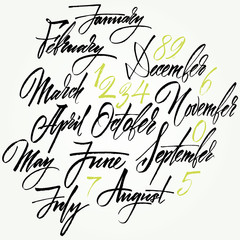 January
February 89
December
March 1 2 3 4 6
November
April October 0
May June September
July 7 August 5